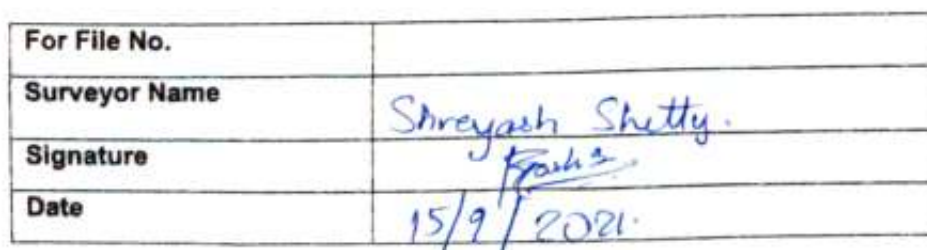 For File No.
Surveyor Name Shreyash Shetty.
Signature
Date 15/9/2021.